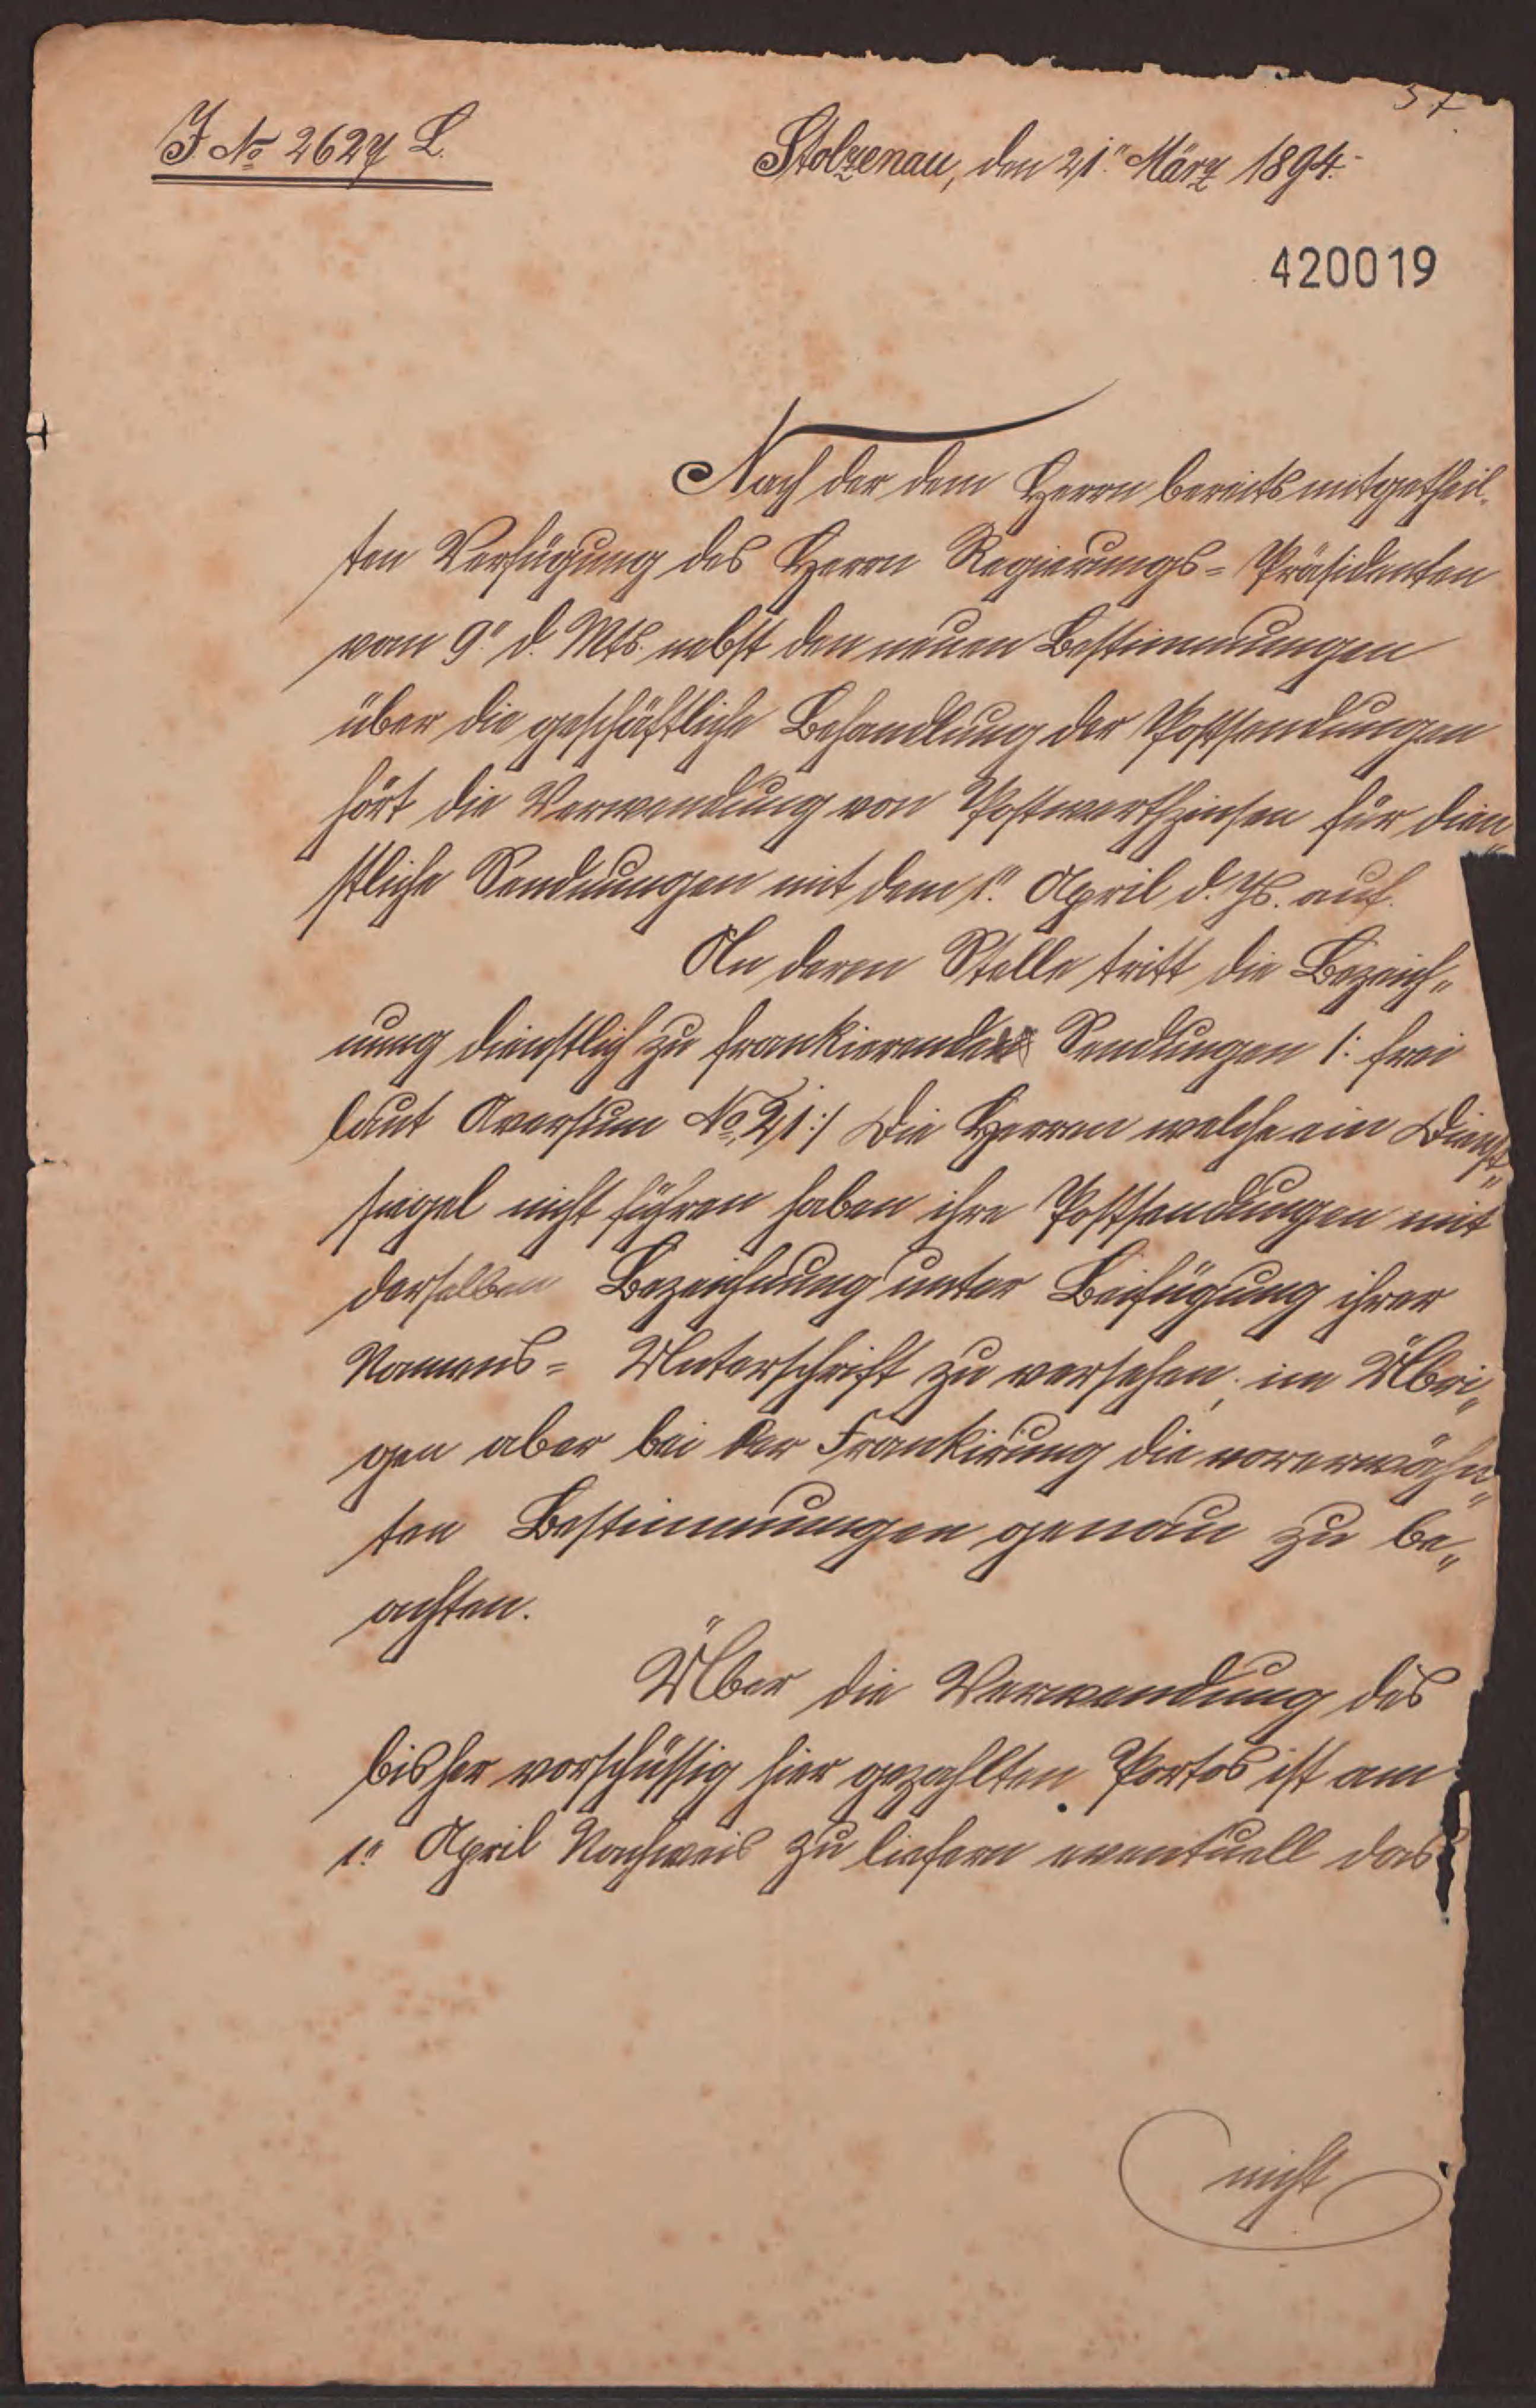 J. No 2627 L.
Stolzenau, den 21ten März 1894.
420019
Nach der dem Herrn bereits mitgetheil-
ten Verfügung des Herrn Regierungs-Präsidenten
vom 9ten d. Mts. nebst den neuen Bestimmungen
über die geschäftliche Behandlung der Postsendungen
hört die Verwendung von Postwerthzeichen für dien-
stliche Sendungen mit dem 1ten April d. Js. auf.
An deren Stelle tritt die Bezeich-
nung dienstlich zu frankierender Sendungen /: frei
laut Aversum No 21 :/ Die Herren welche ein Dienst-
siegel nicht führen haben ihre Postsendungen mit
derselben Bezeichnung unter Beifügung ihrer
Namens- Unterschrift zu versehen, im Übri-
gen aber bei der Frankirung die vorerwähn-
ten Bestimmungen genau zu be-
achten.
Über die Verwendung des
bisher vorschüssig hier gezahlten Portos ist am
1ten April Nachweis zu liefern eventuell das
nicht